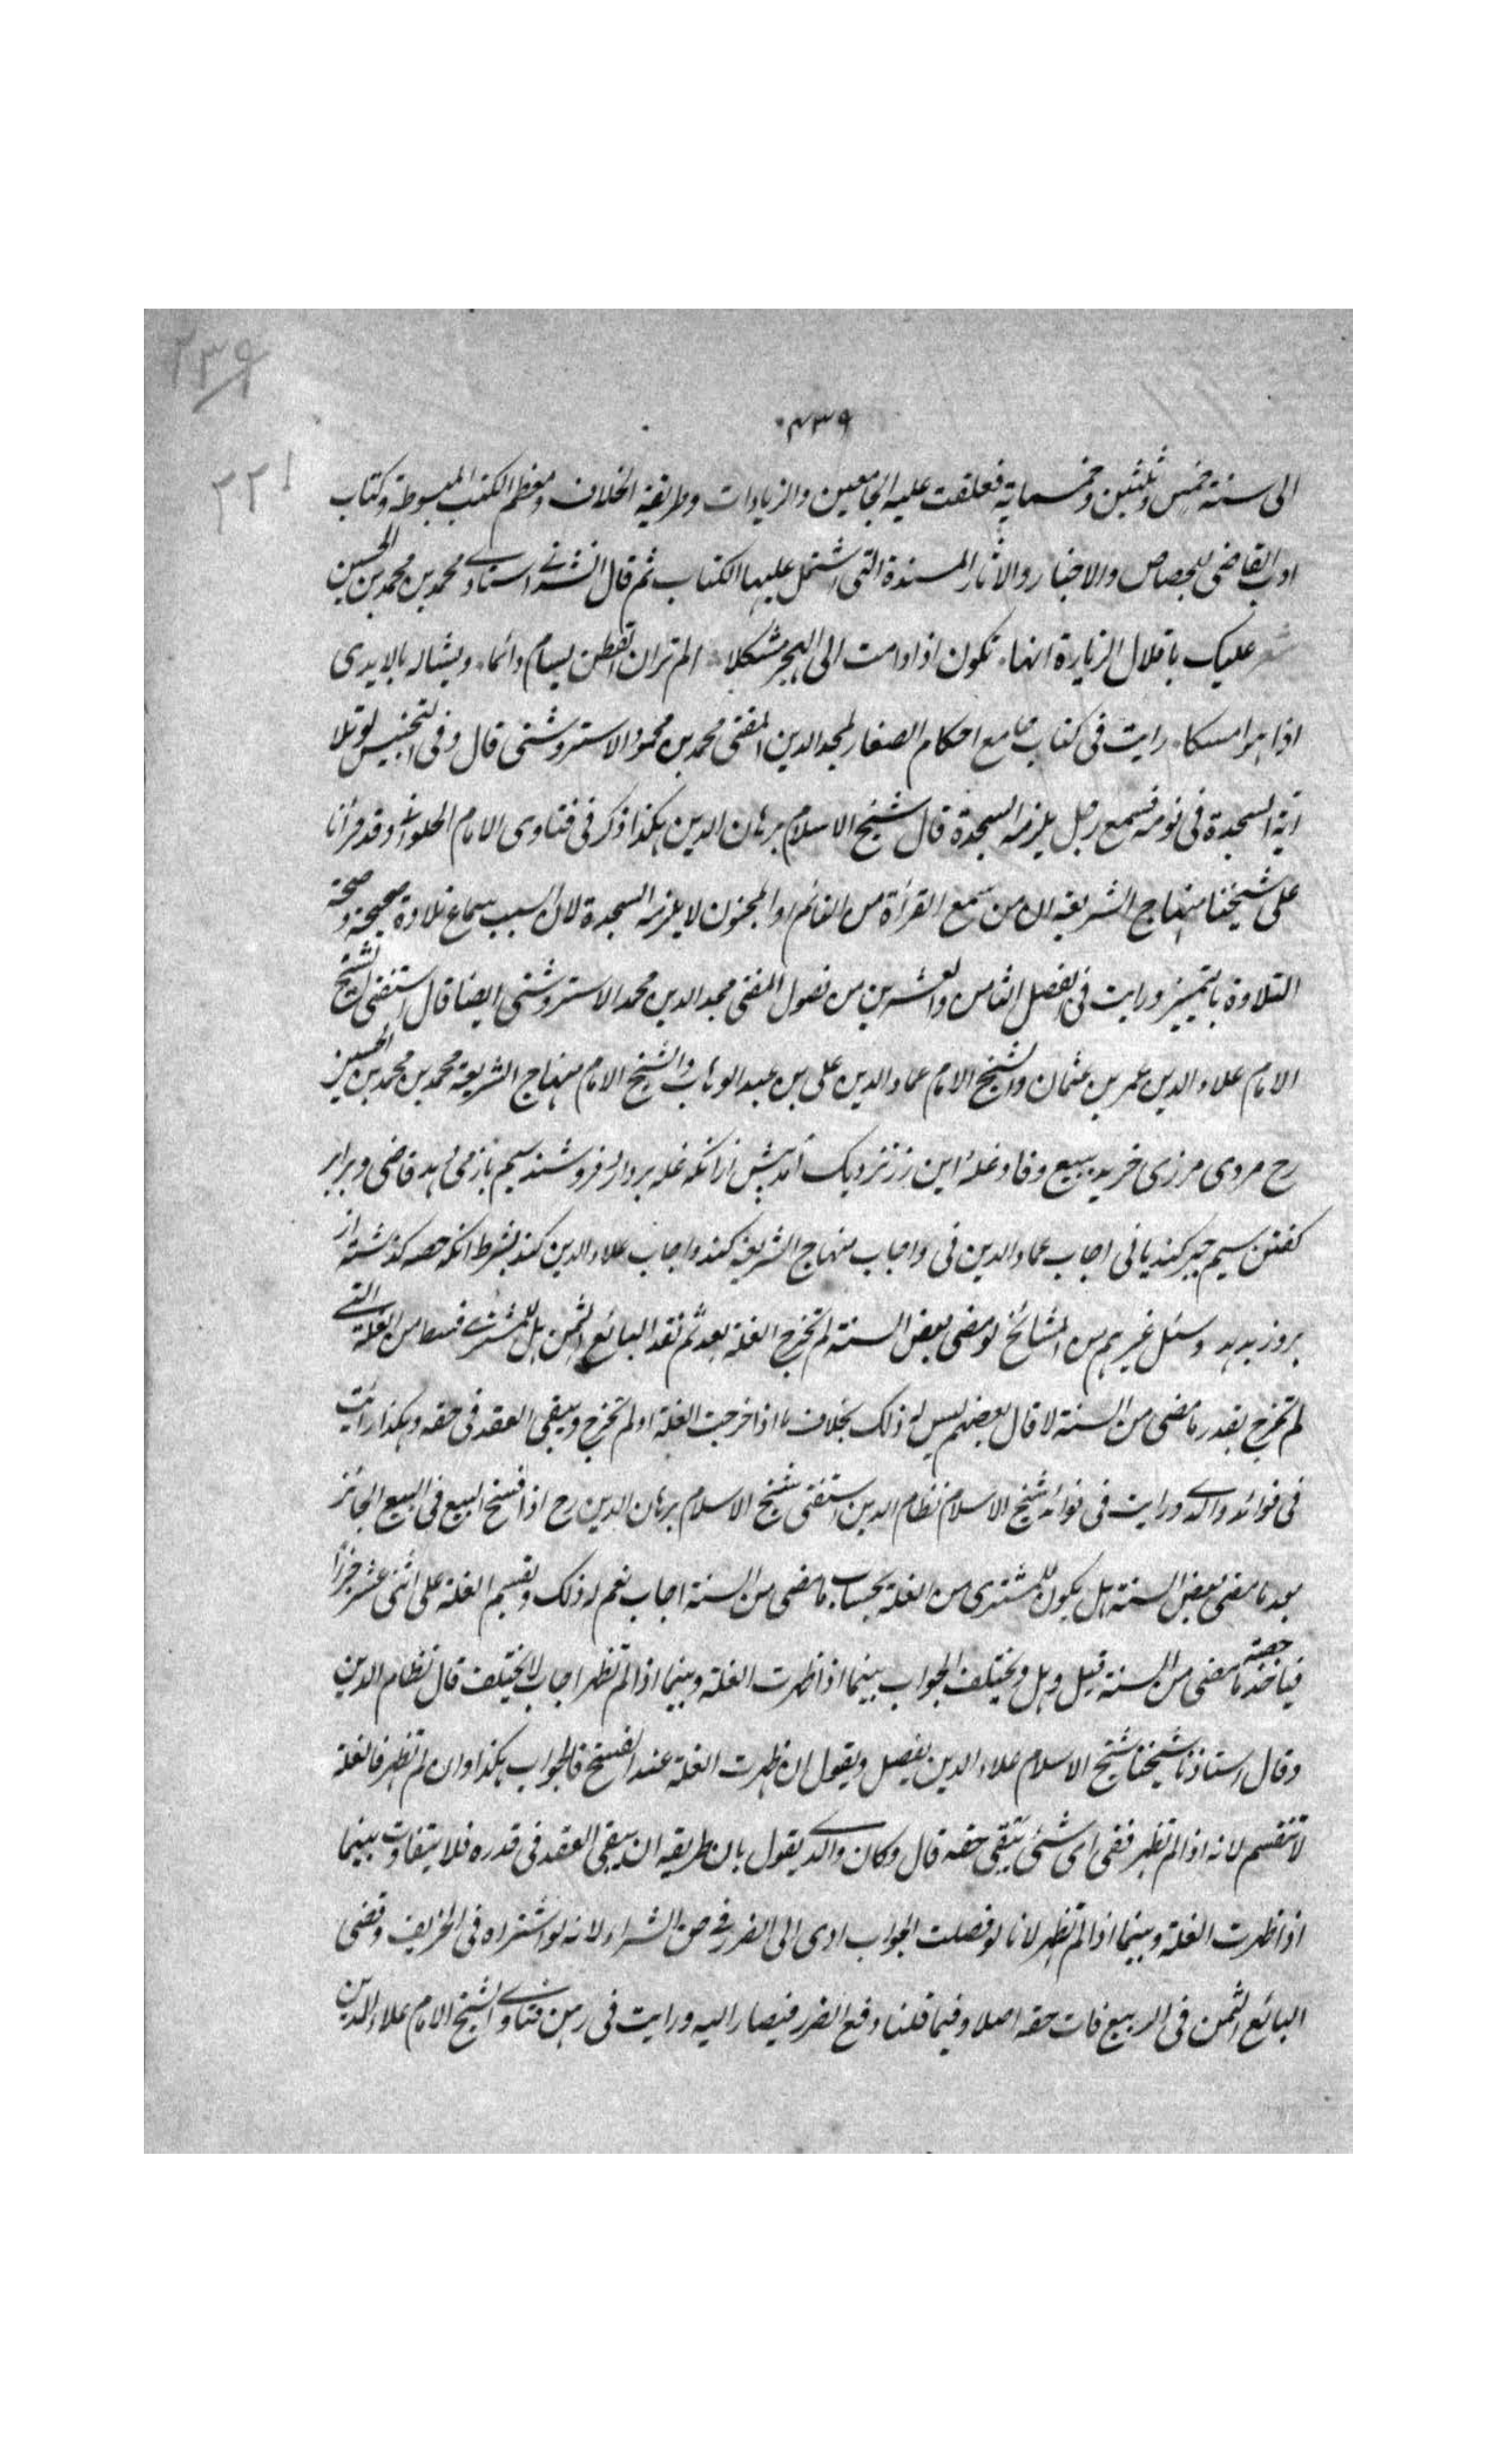 ٢٣٩
٤٣٩
٢٢١
الى سنة خمس وثلثين وخمسماية فعلقت عليه الجامعين والزيادات وطريقة الخلاف ومعظم الكتب المبسوطة وكتاب
ادب القاضى للجصاص والاخبار والاثار المسندة التى اشتمل عليها الكتاب ثم قال انشدنى استادى محمد بن محمد بن الحسين
شعر عليك باقلال الزيارة انها تكون اذا دامت الى الهجر مشكلا الم تر ان القطن يسام دائما ويشاله بالايدى
اذا هو امسكا رايت فى كتاب جامع احكام الصغار لمجد الدين المفتى محمد بن محمود الاستروشنى قال وفى التجنيس لو تلا
اية السجدة فى نومه فسمع رجل يلزمه السجدة قال شيخ الاسلام برهان الدين هكذا ذكر فى فتاوى الامام الحلوانى وقد قرأنا
على شيخنا منهاج الشريعة ان من سمع القرأة من النائم او المجنون لا يلزمه السجدة لان السبب سماع تلاوة صحيحة وصحة
التلاوة بالتمييز ورايت فى الفصل الثامن والعشرين من فصول المفتى مجد الدين محمد الاستروشنى ايضا قال استفتى الشيخ
الامام علاء الدين عمر بن عثمان والشيخ الامام عماد الدين على بن عبد الوهاب والشيخ الامام منهاج الشريعة محمد بن محمد بن الحسين
رح مردى مرزى خريد ببيع وفا وغله اين رز نزديك آمد پيش ازانكه غله بردارد فروشنده سيم باز مى دهد قاضى وبرابر
كفتن سيم جبر كند يا نى اجاب عماد الدين نى واجاب منهاج الشريعة كند واجاب علاء الدين كند بشرط انكه حصه كذشته از
بروز بدهد وسئل غيرهم من المشائخ لو مضى بعض السنة لم تخرج الغلة بعد ثم نقد البائع الثمن هل للمشترى قسط من الغلة التى
لم تخرج بقدر ما مضى من السنة لا قال بعضهم ليس له ذلك بخلاف ما اذا خرجت الغلة او لم تخرج ويبقى العقد فى حقه وهكذا رايت
فى فوائد والدى ورايت فى فوائد شيخ الاسلام نظام الدين استفتى شيخ الاسلام برهان الدين رح اذا فسخ البيع فى البيع الجائز
بعد ما مضى بعض السنة هل يكون للمشترى من الغلة بحساب ما مضى من السنة اجاب نعم له ذلك ويقسم الغلة على اثنى عشر جزأ
فياخذ حصة ما مضى من السنة قيل وهل ويختلف الجواب بينما اذا ظهرت الغلة وبينما اذا لم تظهر اجاب لا يختلف قال نظام الدين
وقال استاذنا شيخنا شيخ الاسلام علاء الدين يفصل ويقول ان ظهرت الغلة عند الفسخ فالجواب هكذا وان لم تظهر فالغلة
لا تنقسم لانه اذا لم تظهر ففى اى شئ يبقى حقه قال وكان والدى يقول بان طريقه ان يبقى العقد فى قدره فلا يتفاوت بينما
اذا ظهرت الغلة وبينما اذا لم تظهر لانا لو فصلت الجواب ادى الى الضرر فى حق الشراء لانه لو اشتراه فى الخريف وقضى
البائع الثمن فى الربيع فات حقه اصلا وفيما قلنا دفع الضرر فيصار اليه ورايت فى رهن فتاوى الشيخ الامام علاء الدين